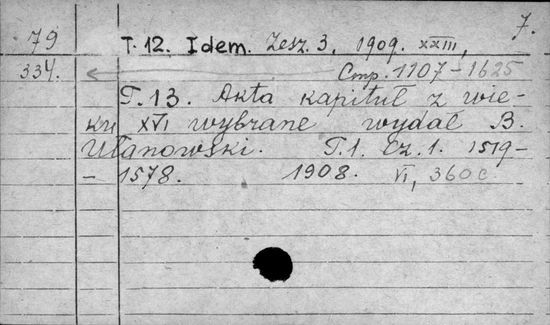 7.
79 T. 12. Idem. Zesz. 3, 1909. XXIII,
334. Стр. 1107-1625
T. 13. Akta kapituł z wie-
ku XVI wybrane wydał B.
Ulanowski. T. 1. Cz. 1. 1519-
- 1578. 1908. VI, 360 c.